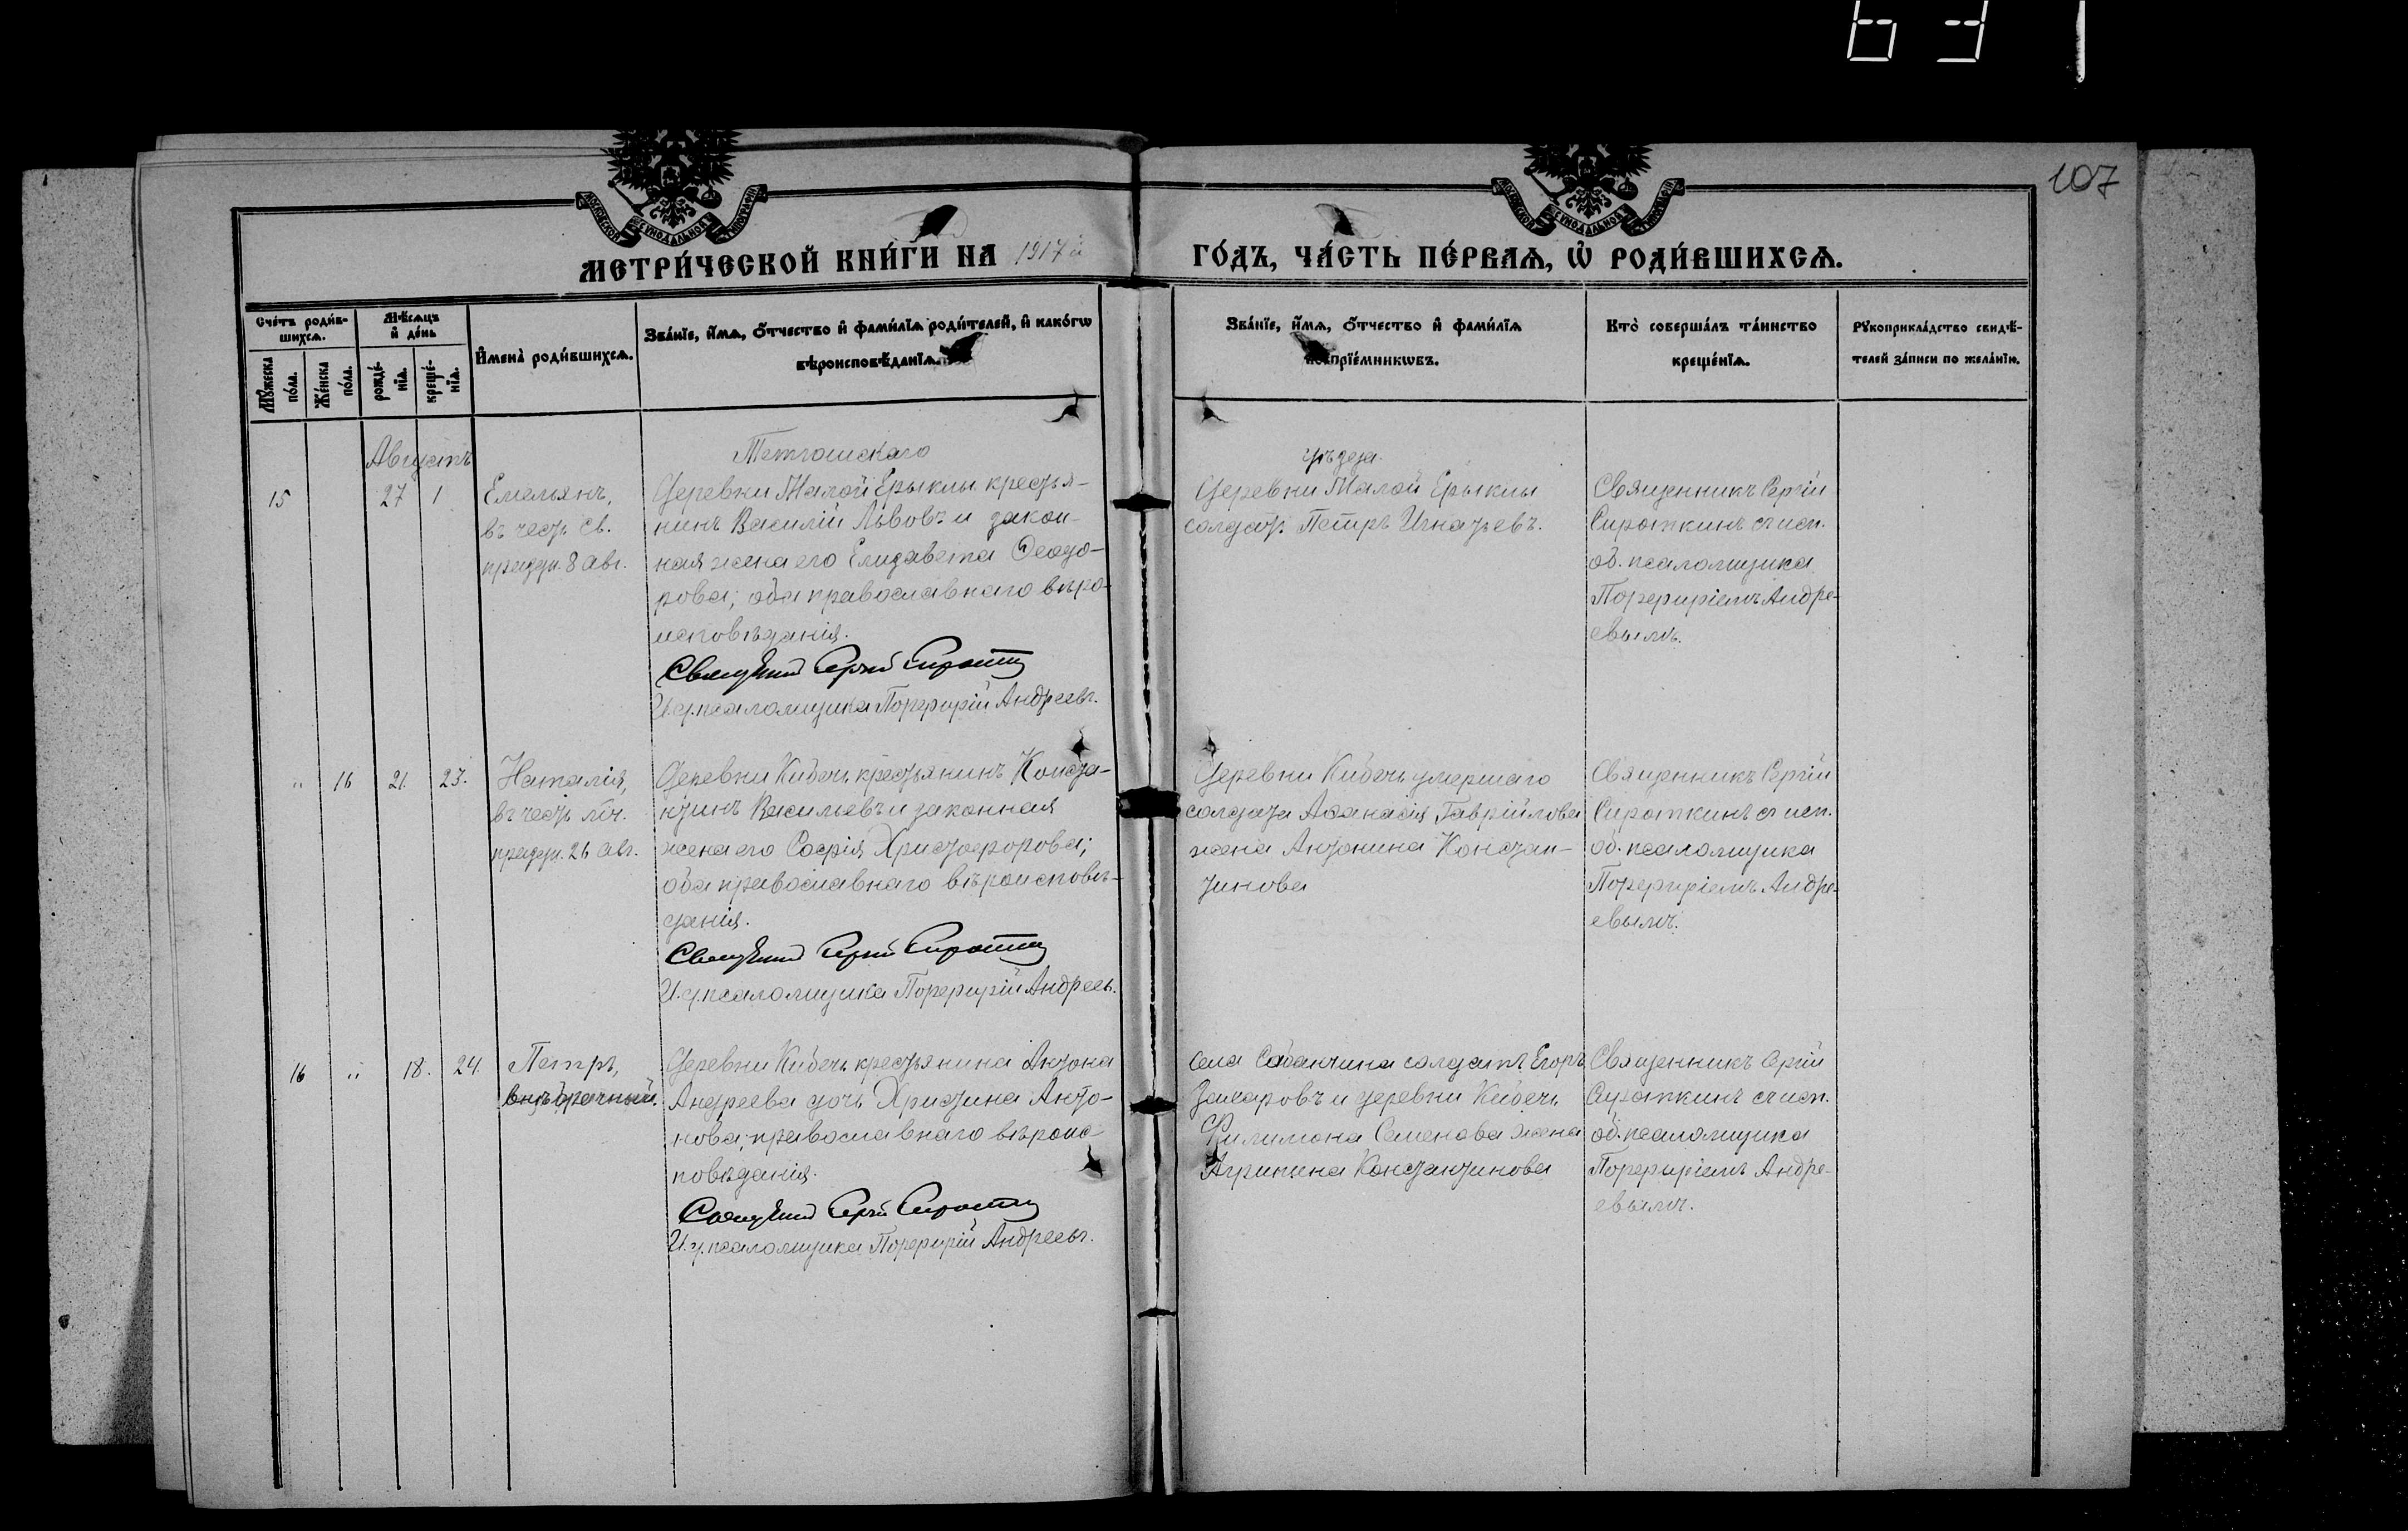 107
МЕТРИ́ЧЕСКОЙ КНИ́ГИ НА 1917 й ГО́ДЪ, ЧА́СТЬ ПЕ́РВАѦ, Ѡ҆ РОДИ́ВШИХСѦ.
МОСКОВСКОЙ СѴНОДАЛЬНОЙ ТИПОГРАФІИ
МОСКОВСКОЙ СѴНОДАЛЬНОЙ ТИПОГРАФІИ
Сче́тъ роди́в-
шихсѧ.
Мꙋ́жеска
по́ла.
Же́нска
по́ла.
Мѣ́сѧцъ
и҆ де́нь
рожде́-
нїѧ.
креще́-
нїѧ.
И҆мена̀ роди́вшихсѧ.
Зва́нїе, и҆́мѧ, ѻ҆́тчество и҆ фами́лїѧ роди́телей, и҆ како́гѡ
вѣроисповѣ́данїѧ.
Зва́нїе, и҆́мѧ, ѻ҆́тчество и҆ фами́лїѧ
воспрїе́мникѡвъ.
Кто̀ соверша́лъ та́инство
креще́нїѧ.
Рꙋкоприкла́дство свидѣ́-
телей за́писи по жела́нїю.
Августъ
Тетюшскаго
уѣзда.
15 27 1
Емельянъ,
въ честь св.
праздн. 8 авг.
Деревни Малой Ерыклы крестья-
нинъ Василій Львовъ и закон-
ная жена его Елизавета Ѳеодо-
рова; оба православнаго вѣро-
исповѣданія.
Священникъ Сергій Сироткин
И.д. псаломщика Порфирій Андреевъ.
Деревни Малой Ерыклы
солдатъ Петръ Игнатьевъ.
Священникъ Сергій
Сироткинъ съ исп.
об. псаломщика
Порфиріемъ Андре-
евымъ.
" 16 21. 23.
Наталія,
въ честь мч.
праздн. 26 авг.
Деревни Кибечь крестьянинъ Конста-
нтинъ Васильевъ и законная
жена его Софія Христофорова;
оба православнаго вѣроисповѣ-
данія.
Священникъ Сергій Сироткин
И.д. псаломщика Порфирій Андреевъ.
Деревни Кибечь умершаго
солдата Аѳанасія Гаврійлова
жена Антонина Констан-
тинова
Священникъ Сергій
Сироткинъ съ исп.
об. псаломщика
Порфиріемъ Андре-
евымъ.
16 " 18. 24.
Петръ,
внѣбрачный.
Деревни Кибечь крестьянина Антона
Андреева дочь Христина Анто-
нова; православнаго вѣроис-
повѣданія.
Священникъ Сергій Сироткин
И.д. псаломщика Порфирій Андреевъ.
Села Сабанчина солдатъ Егоръ
Захаровъ и деревни Кибечь
Филимона Семенова жена
Агрипина Константинова
Священникъ Сергій
Сироткинъ съ исп.
об. псаломщика
Порфиріемъ Андре-
евымъ.